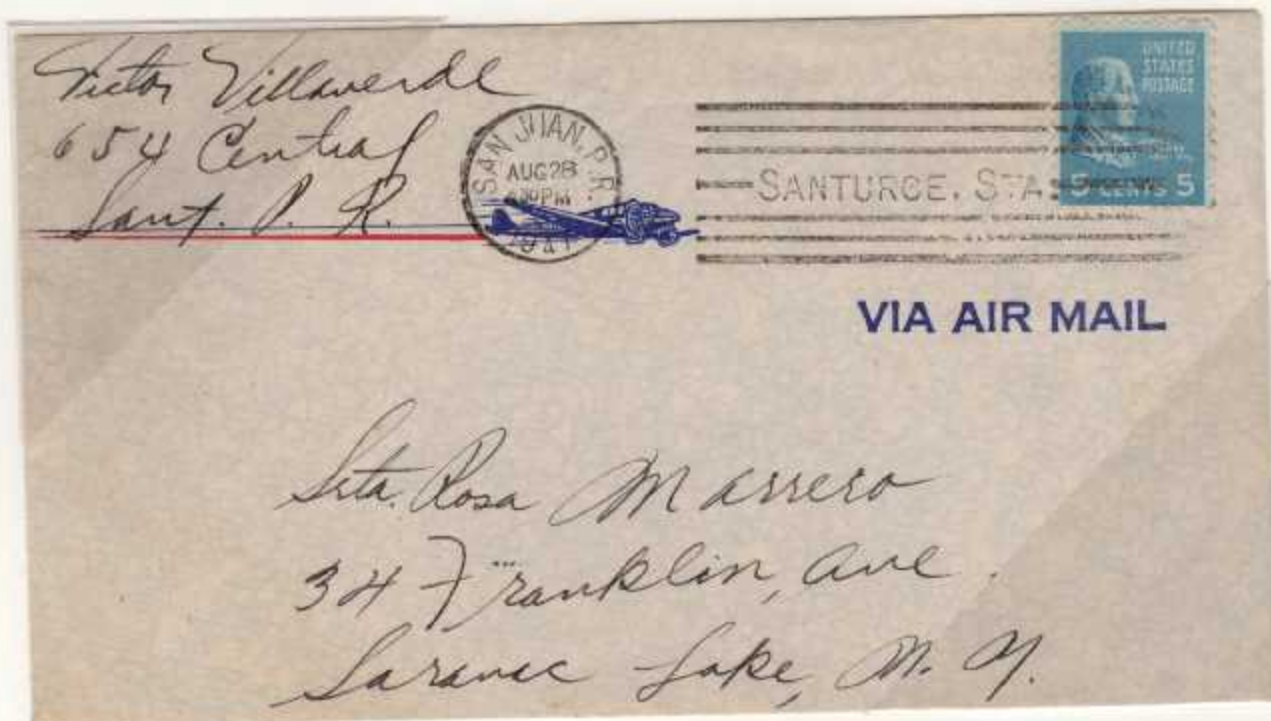 Victor Villaverde
654 Central
Sant. P. R.
SAN JUAN, P.R.
AUG 28
PM
1941
SANTURCE, STA.
UNITED
STATES
POSTAGE
5 CENTS 5
VIA AIR MAIL
Srta. Rosa Marrero
34 Franklin, Ave.
Saranac Lake, N. Y.